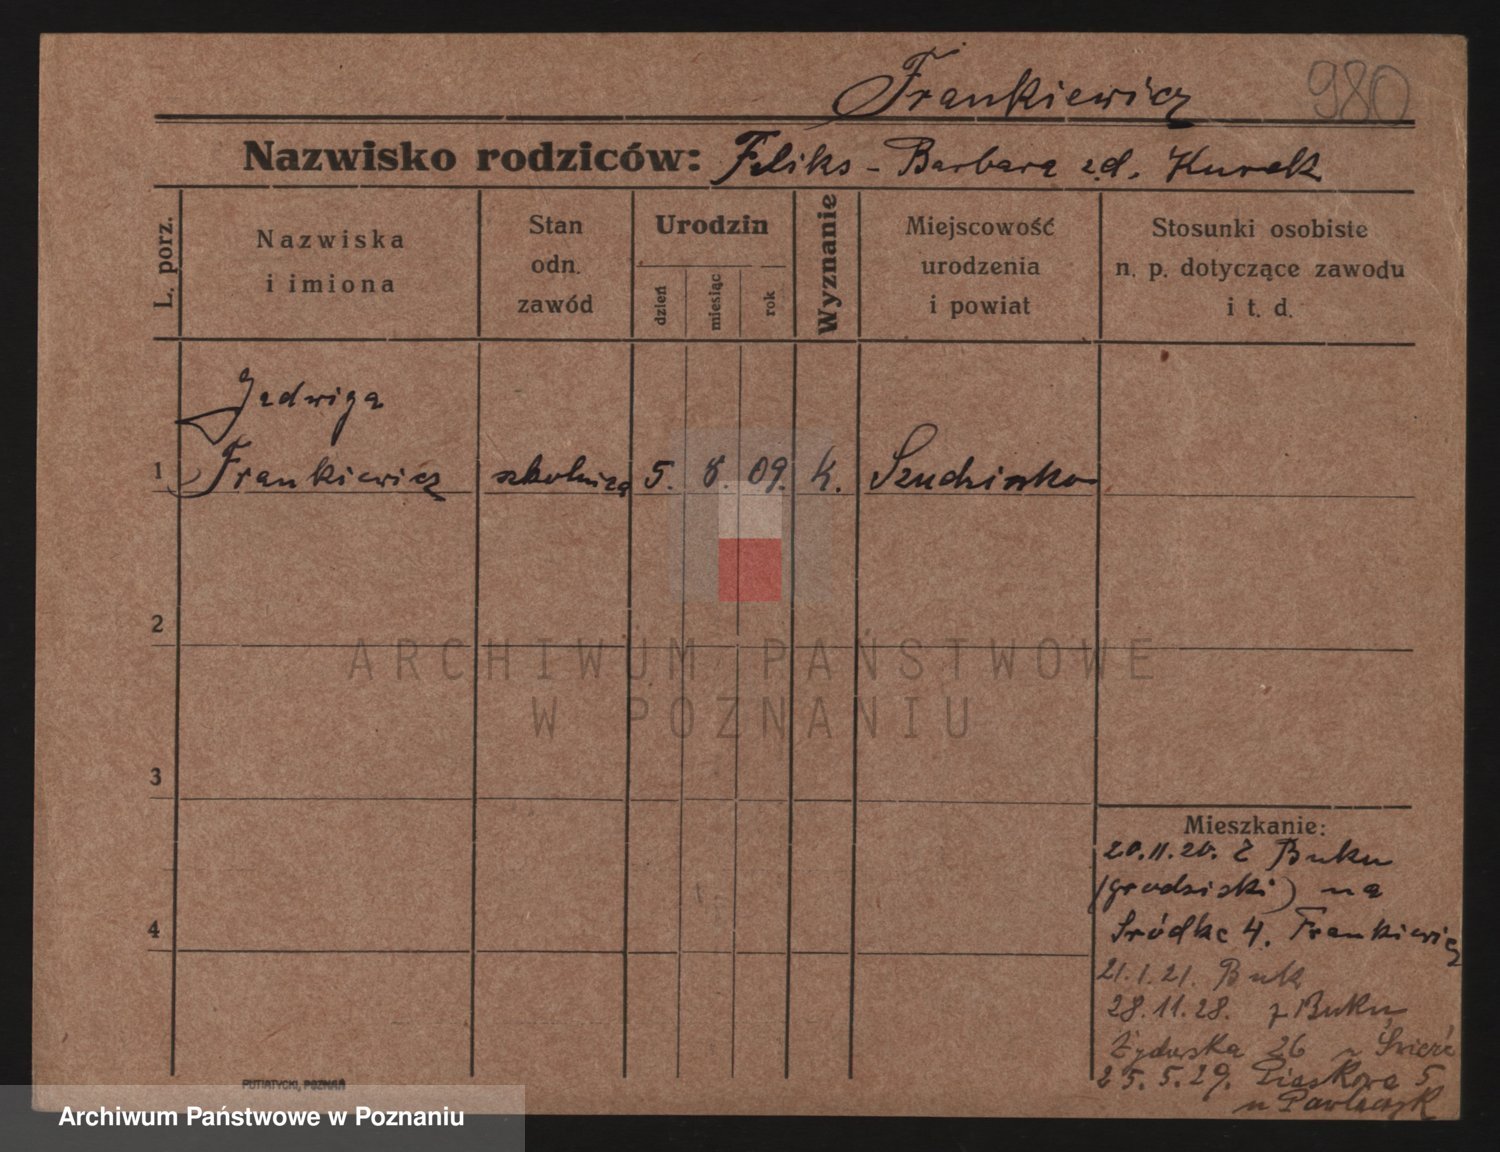 Frankiewicz 980
Nazwisko rodziców: Feliks - Barbara z d. Kurek
L. porz.
Nazwiska
i imiona
Stan
odn.
zawód
Urodzin
dzień
miesiąc
rok
Wyznanie
Miejscowość
urodzenia
i powiat
Stosunki osobiste
n. p. dotyczące zawodu
i t. d.
Jadwiga
1 Frankiewicz 5. 8. 09. k.
2
3
4
Mieszkanie:
20.11.20. z Buku
(grodziski) na
Śródkę 4. Frankiewicz
21.1.21. Buk
28.11.28. z Buku
Żydowska 26
25.5.29. Piaskowa 5
PUTIATYCKI, POZNAŃ
ARCHIWUM PAŃSTWOWE
W POZNANIU
Archiwum Państwowe w Poznaniu